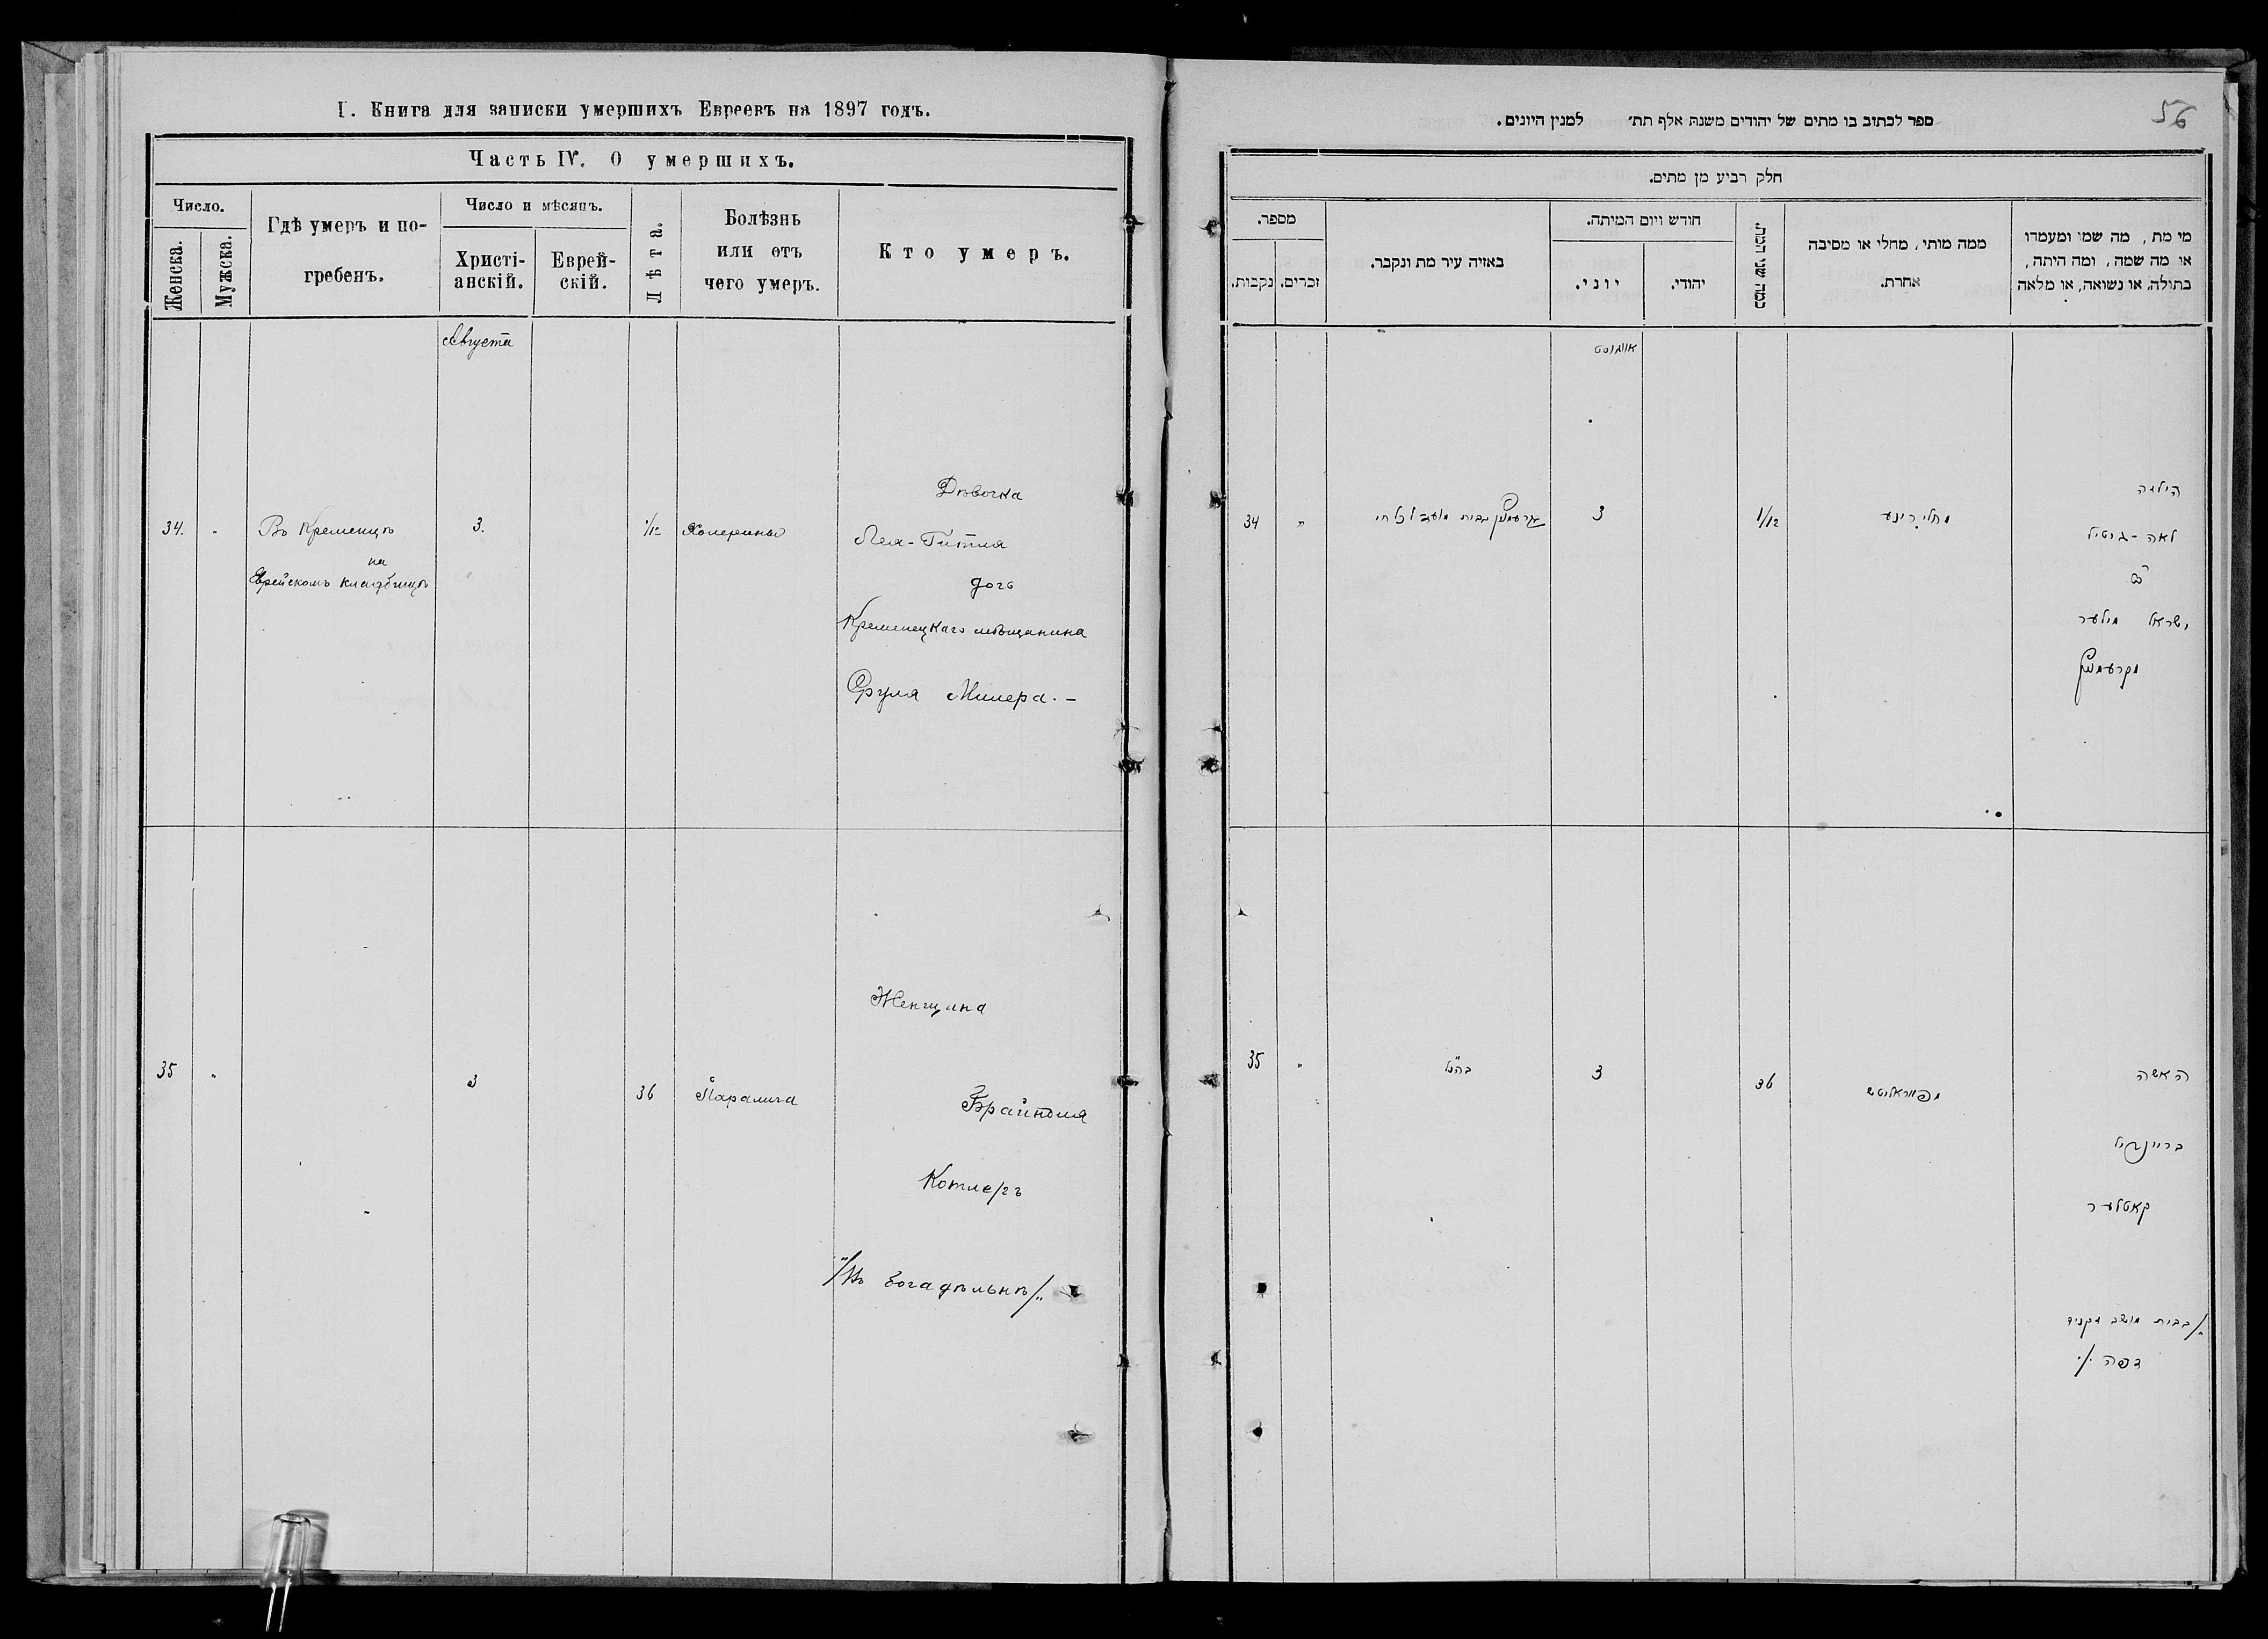 I. Книга для записки умершихъ Евреевъ на 1897 годъ.
Часть IV. О умершихъ.
Число.
Женска.
Мужска.
Гдѣ умеръ и по-
гребенъ.
Число и мѣсяцъ.
Христі-
анскій.
Еврей-
скій.
Лѣта.
Болѣзнь
или отъ
чего умеръ.
Кто умеръ.
Августа
34.
"
Въ Кременцѣ
на
Еврейскомъ кладбищѣ
3.
1/12
Холерины
Дѣвочка
Лея-Гитля
дочь
Кременецкаго мѣщанина
Сруля Милера. –
35
"
3
36
Паралича
Женщина
Брайндля
Котлеръ
/Въ богадѣльнѣ/
56
ספר לכתוב בו מתים של יהודים משנת אלף תת׳ למנין היונים.
חלק רביע מן מתים.
מספר.
נקבות.
זכרים.
באזיה עיר מת ונקבר.
חודש ויום המיתה.
יוני.
יהודי.
כמה שני המת.
ממה מותי, מחלי או מסיבה
אחרת.
מי מת, מה שמו ומעמדו
או מה שמה, ומה היתה,
בתולה, או נשואה, או מלאה
אויגוסט
34
"
3
1/12
הילדה
לאה-גיטיל
ישראל מילער
35
"
בהנ"ל
3
36
האשה
בריינדיל
קאטלער